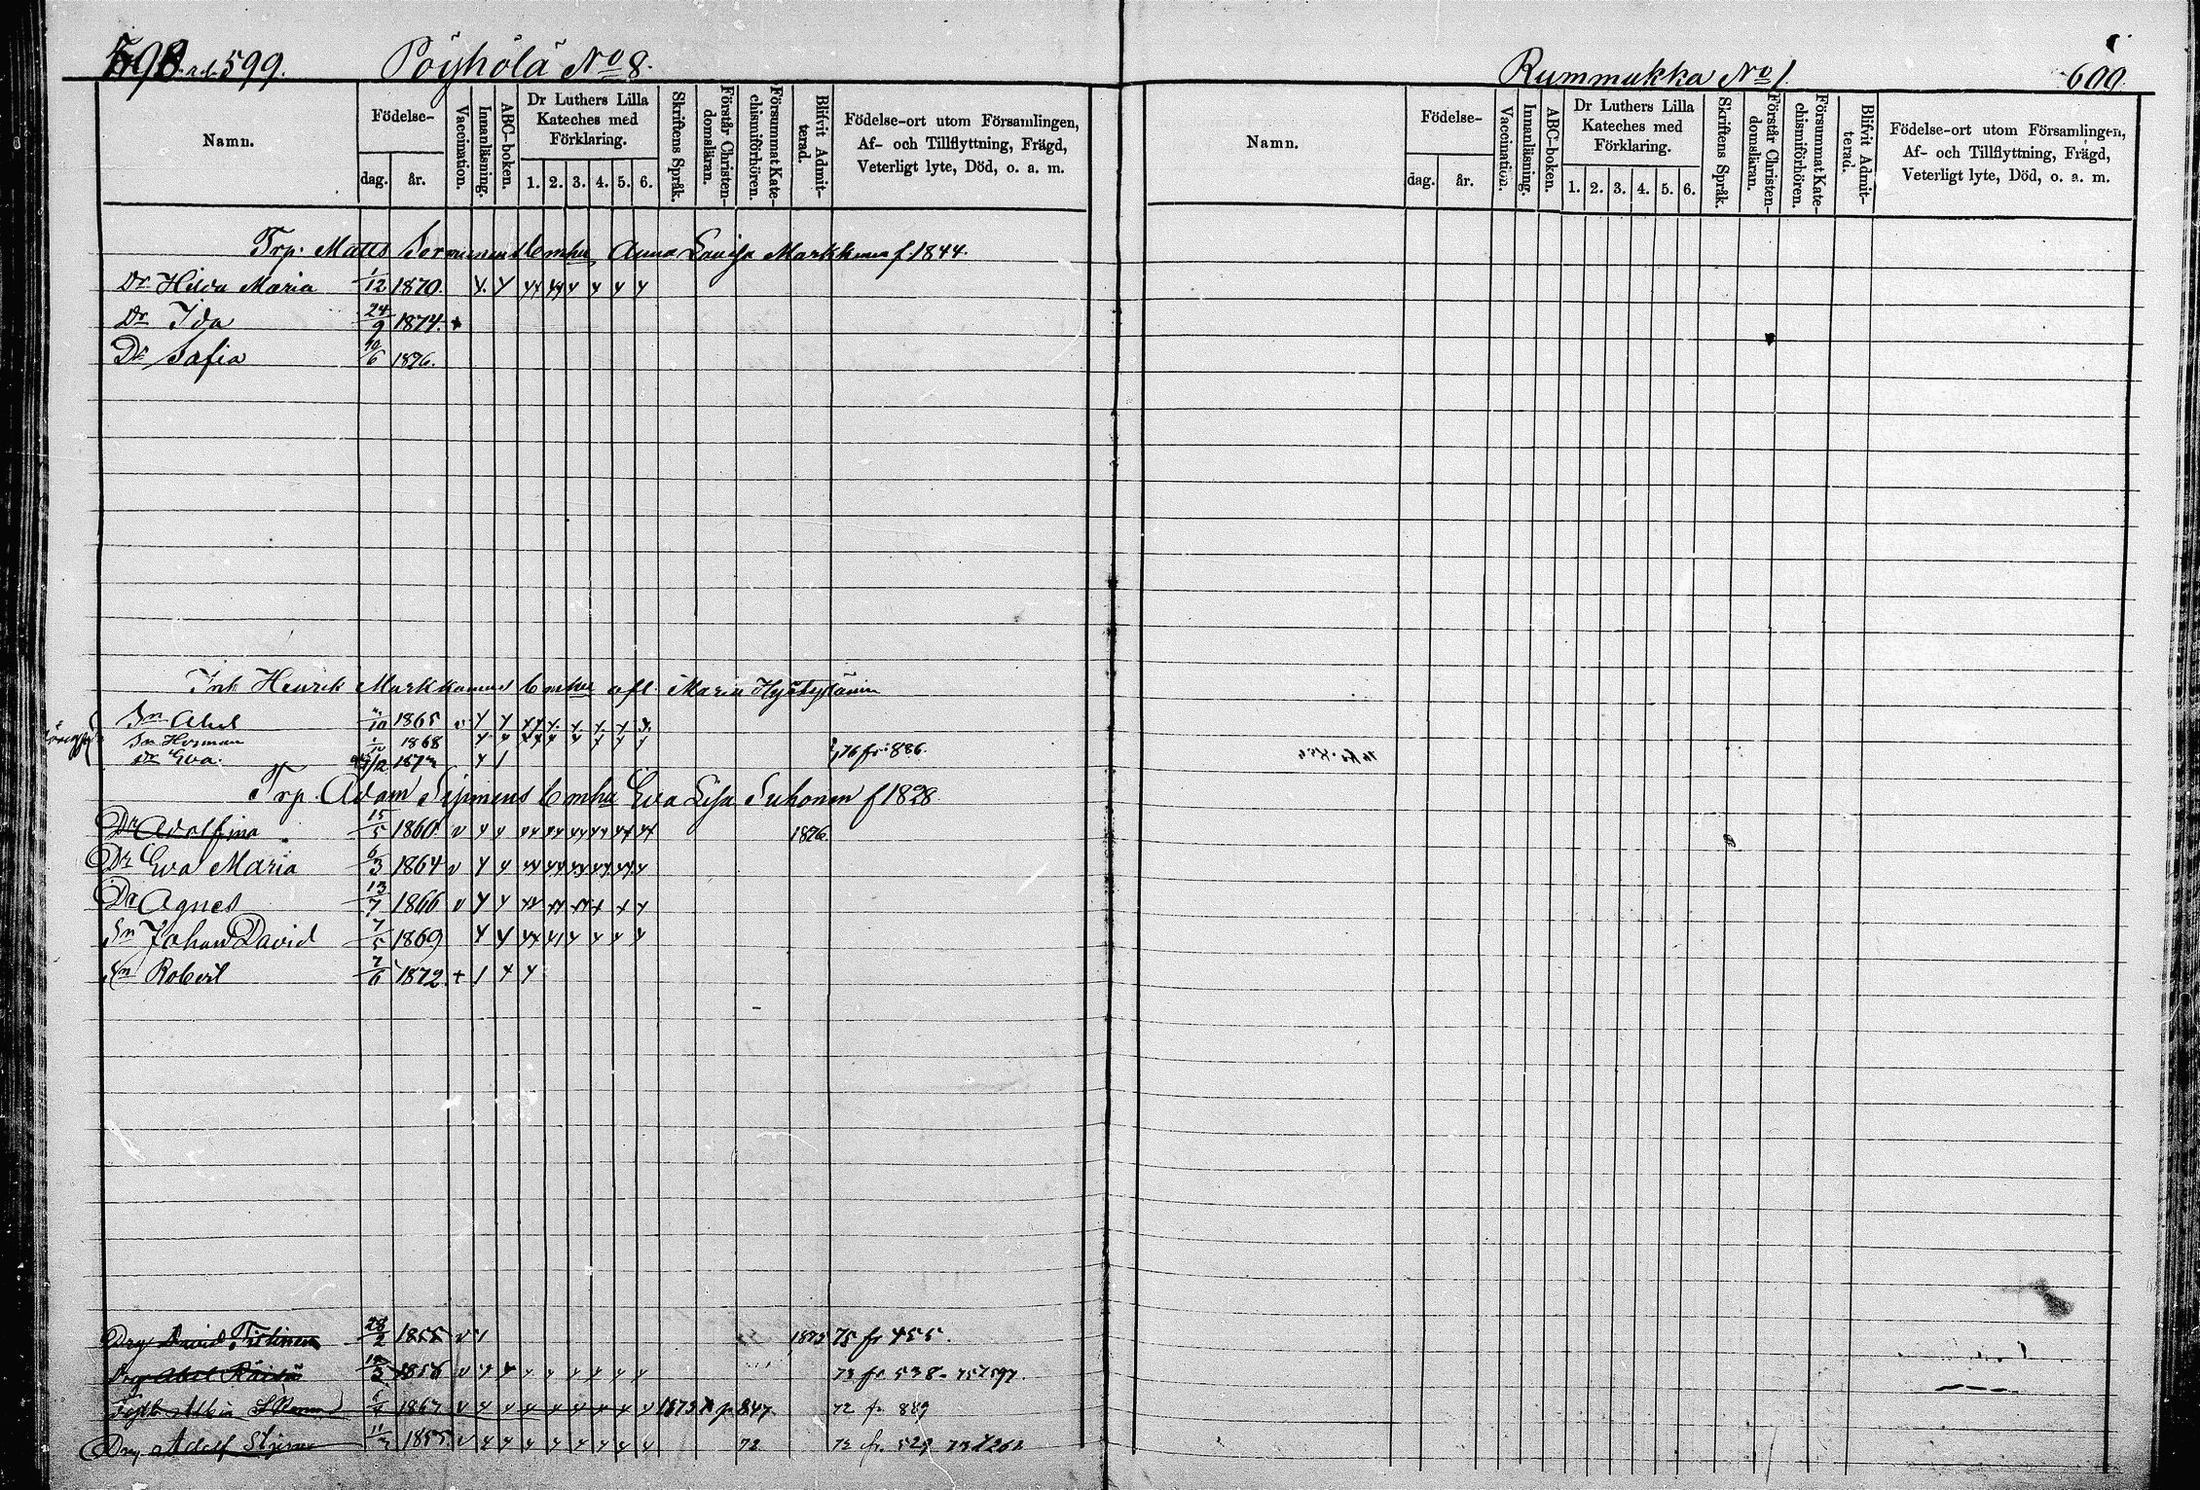 598 599. Pöyhölä No 8.
Namn. Födelse- dag. år. Vaccination. Innanläsning. ABC-boken. Dr Luthers Lilla Kateches med Förklaring. 1. 2. 3. 4. 5. 6. Skriftens Språk. Förstår Christendomsläran. Försummat Katechismiförhören. Blifvit Admitterad. Födelse-ort utom Församlingen, Af- och Tillflyttning, Frägd, Veterligt lyte, Död, o. a. m.
Trp. Matts Enku Anna Lovisa Markkanen f. 1844.
Dr. Hilda Maria 1/12 1870.
Dr Ida 24/9 1874. +
Dr Sofia 10/6 1876.
Inh Henrik Markkanens Enku afl. Maria
Sn Abel /10 1865 v
Sn Herman 1868
Dr Eva. 76 fr. 886.
Trp. Adam Enku Eva Lisa Suhonen f 1828.
Dr Adolfina 15/5 1860 v 1876.
Dr Eva Maria 6/3 1864 v
Dr Agnes 13/7 1866 v
Sn Johan David 7/5 1869
Sn Robert 7/6 1872 +
Drg David Tistinen 28/2 1855 v 1873 75 fr 455.
Drg Abel 1856 v 73 fr. 538-
Albin 1867 v 1873 847. 72 fr 889
Drg Adolf 1855. v 72 72 fr. 529
Rummukka No 1. 600
Namn. Födelse- dag. år. Vaccination. Innanläsning. ABC-boken. Dr Luthers Lilla Kateches med Förklaring. 1. 2. 3. 4. 5. 6. Skriftens Språk. Förstår Christendomsläran. Försummat Katechismiförhören. Blifvit Admitterad. Födelse-ort utom Församlingen, Af- och Tillflyttning, Frägd, Veterligt lyte, Död, o. a. m.